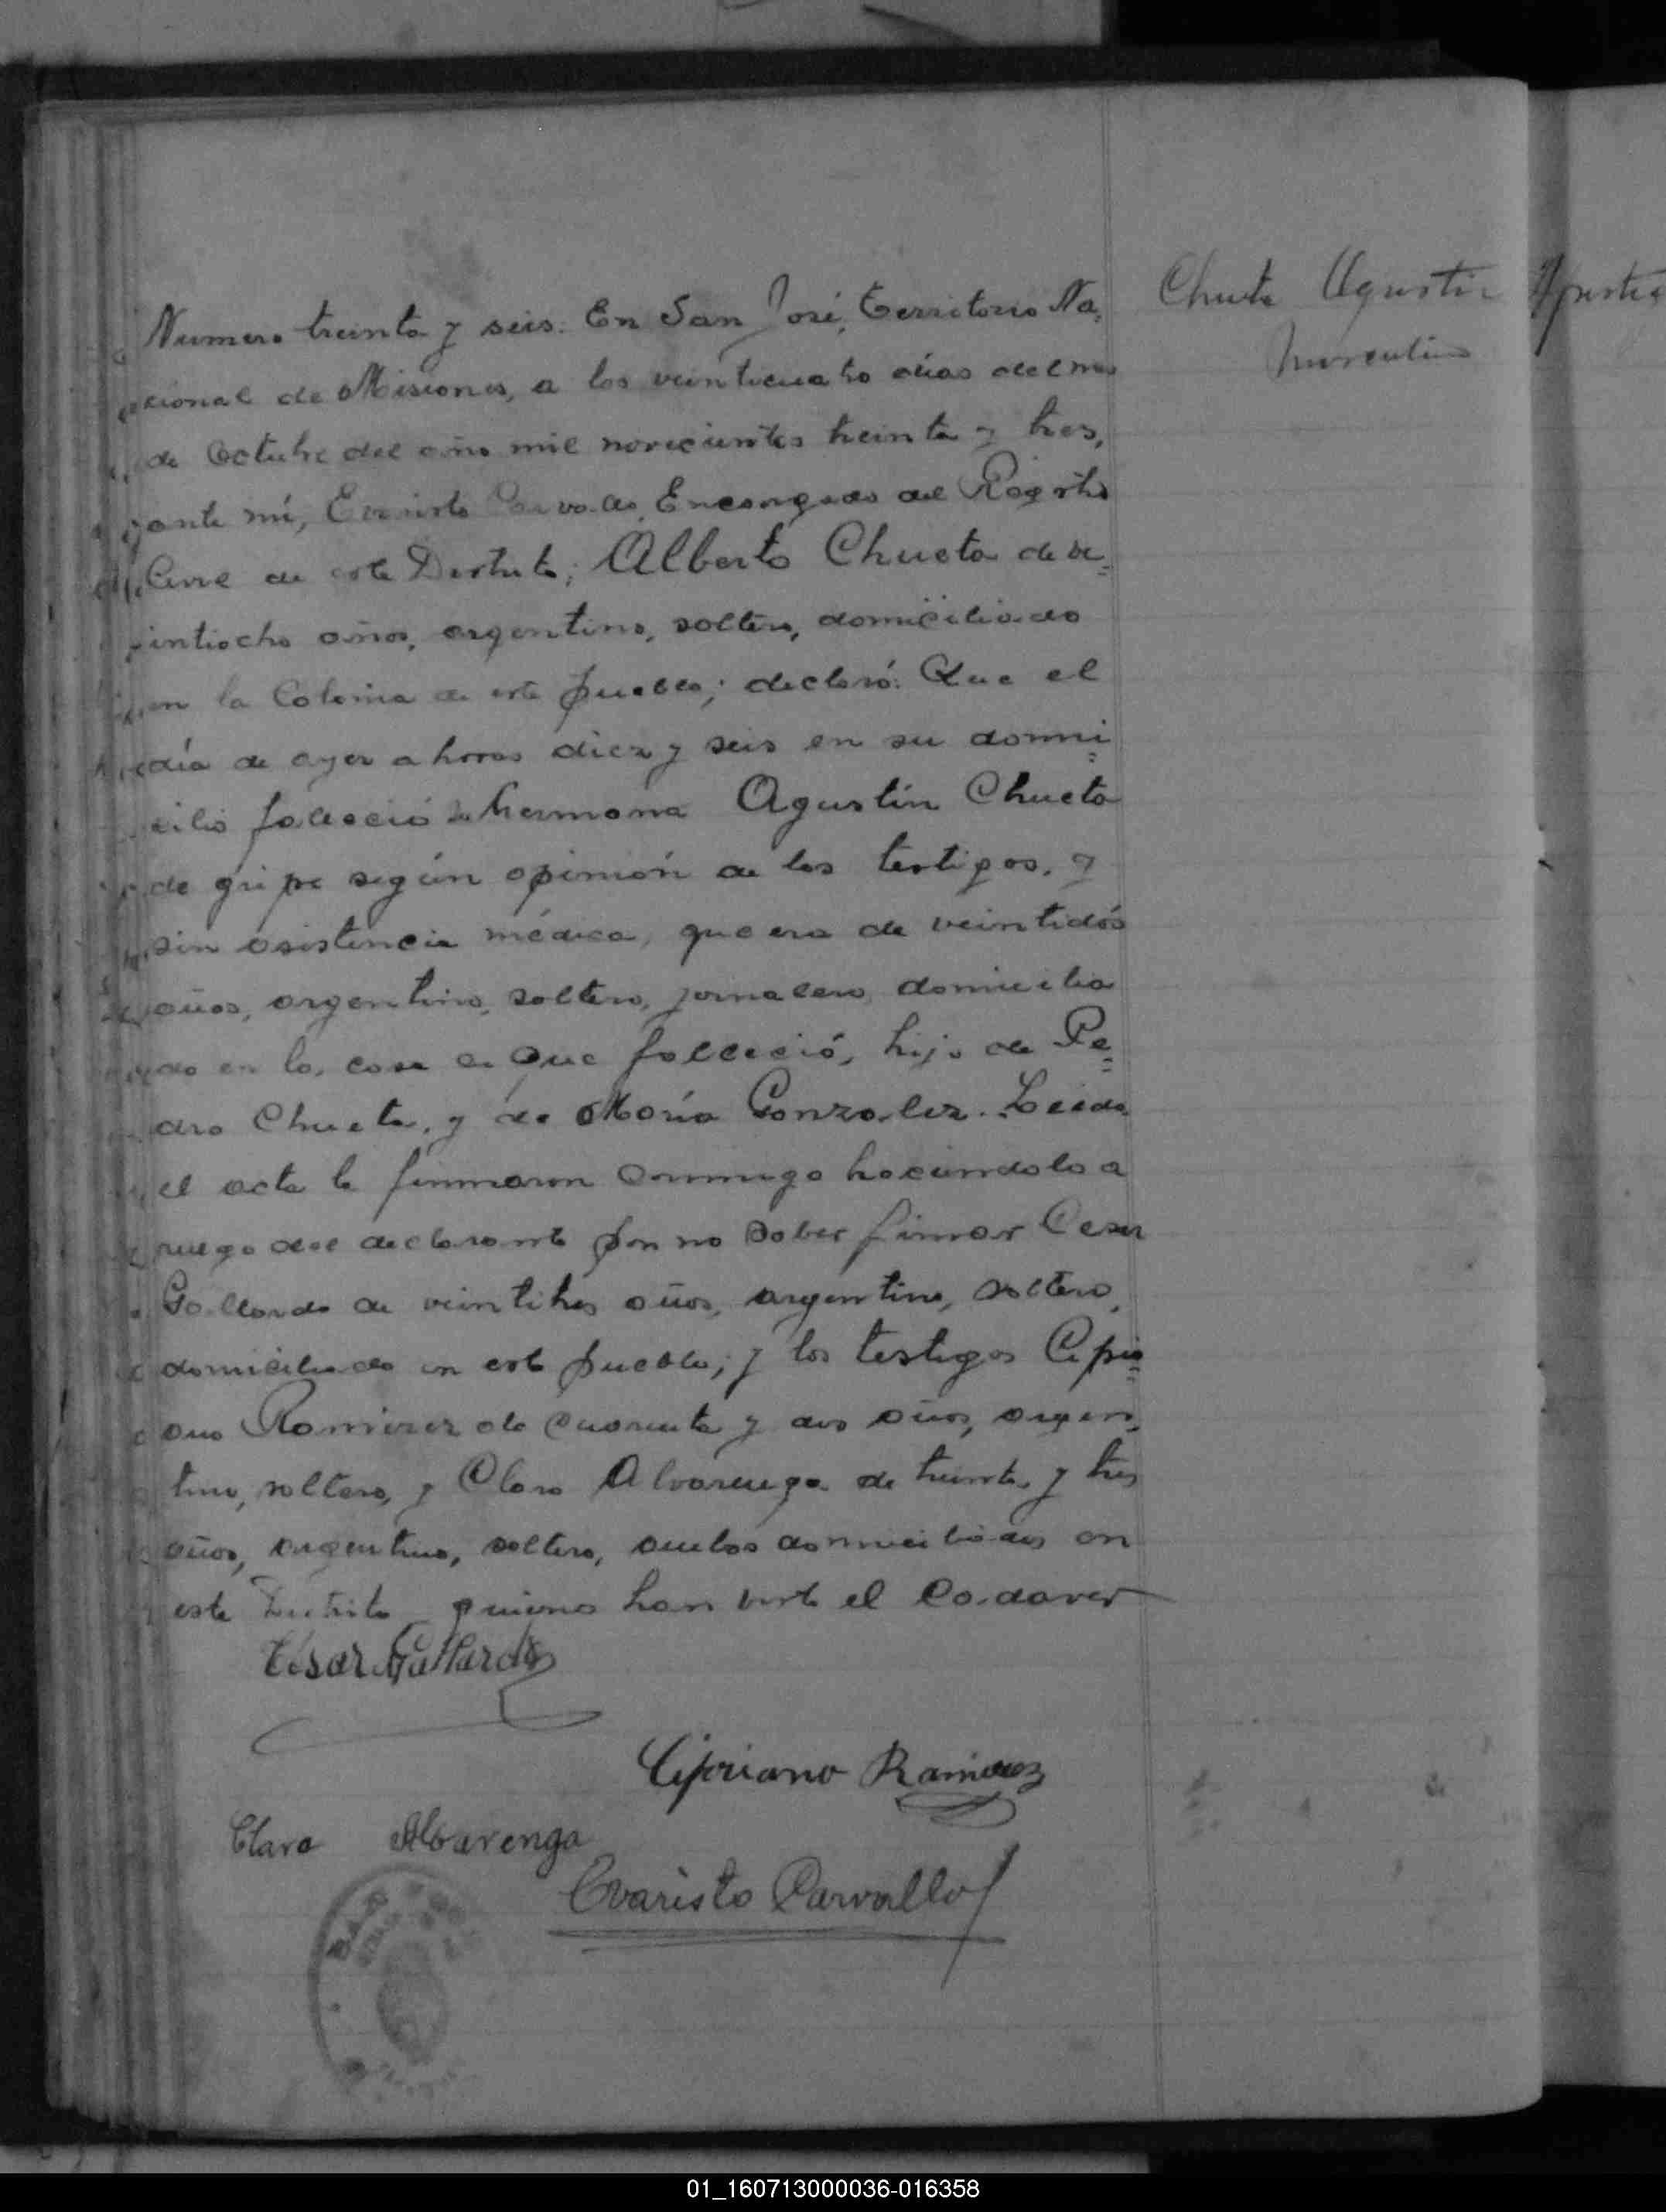 Numero treinta y seis: En San José, Territorio Na=
cional de Misiones, a los veinticuatro días del mes
de Octubre del año mil novecientos treinta y tres,
ante mí, Evaristo Carvallo, Encargado del Registro
Civil de este Distrito; Alberto Chueta de ve=
intiocho años, argentino, soltero, domiciliado
en la Colonia de este pueblo; declaró: Que el
día de ayer a horas diez y seis en su domi=
cilio falleció su hermano Agustín Chueta
de gripe según opinión de los testigos, y
sin asistencia médica, que era de veintidós
años, argentino, soltero, jornalero, domicilia
do en la casa en que falleció, hijo de Pe=
dro Chueta, y de María Gonzalez. Leida
el acta la firmaron conmigo haciendolo a
ruego del declarante por no saber firmar Cesar
Gallardo de veintitres años, argentino, soltero,
domiciliado en este pueblo; y los testigos Cipri=
ano Ramirez de cuarenta y dos años, argen=
tino, soltero, y Claro Alvarenga de treinta y tres
años, argentino, soltero, ambos domiciliados en
este Distrito quienes han visto el cadaver
César Gallardo
Cipriano Ramirez
Claro Albarenga
Evaristo Carvallo
Chueta Agustin
Masculino
01_160713000036-016358